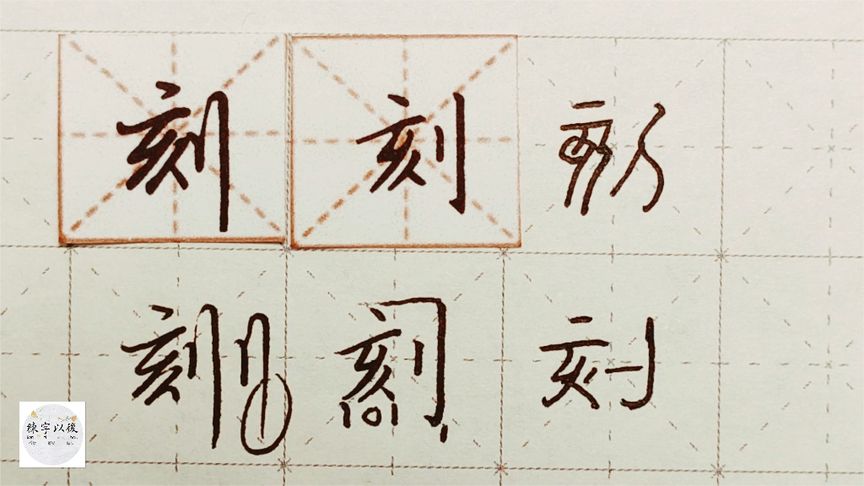 刻 刻 刻
刻 刂 刻 刻
練字以後